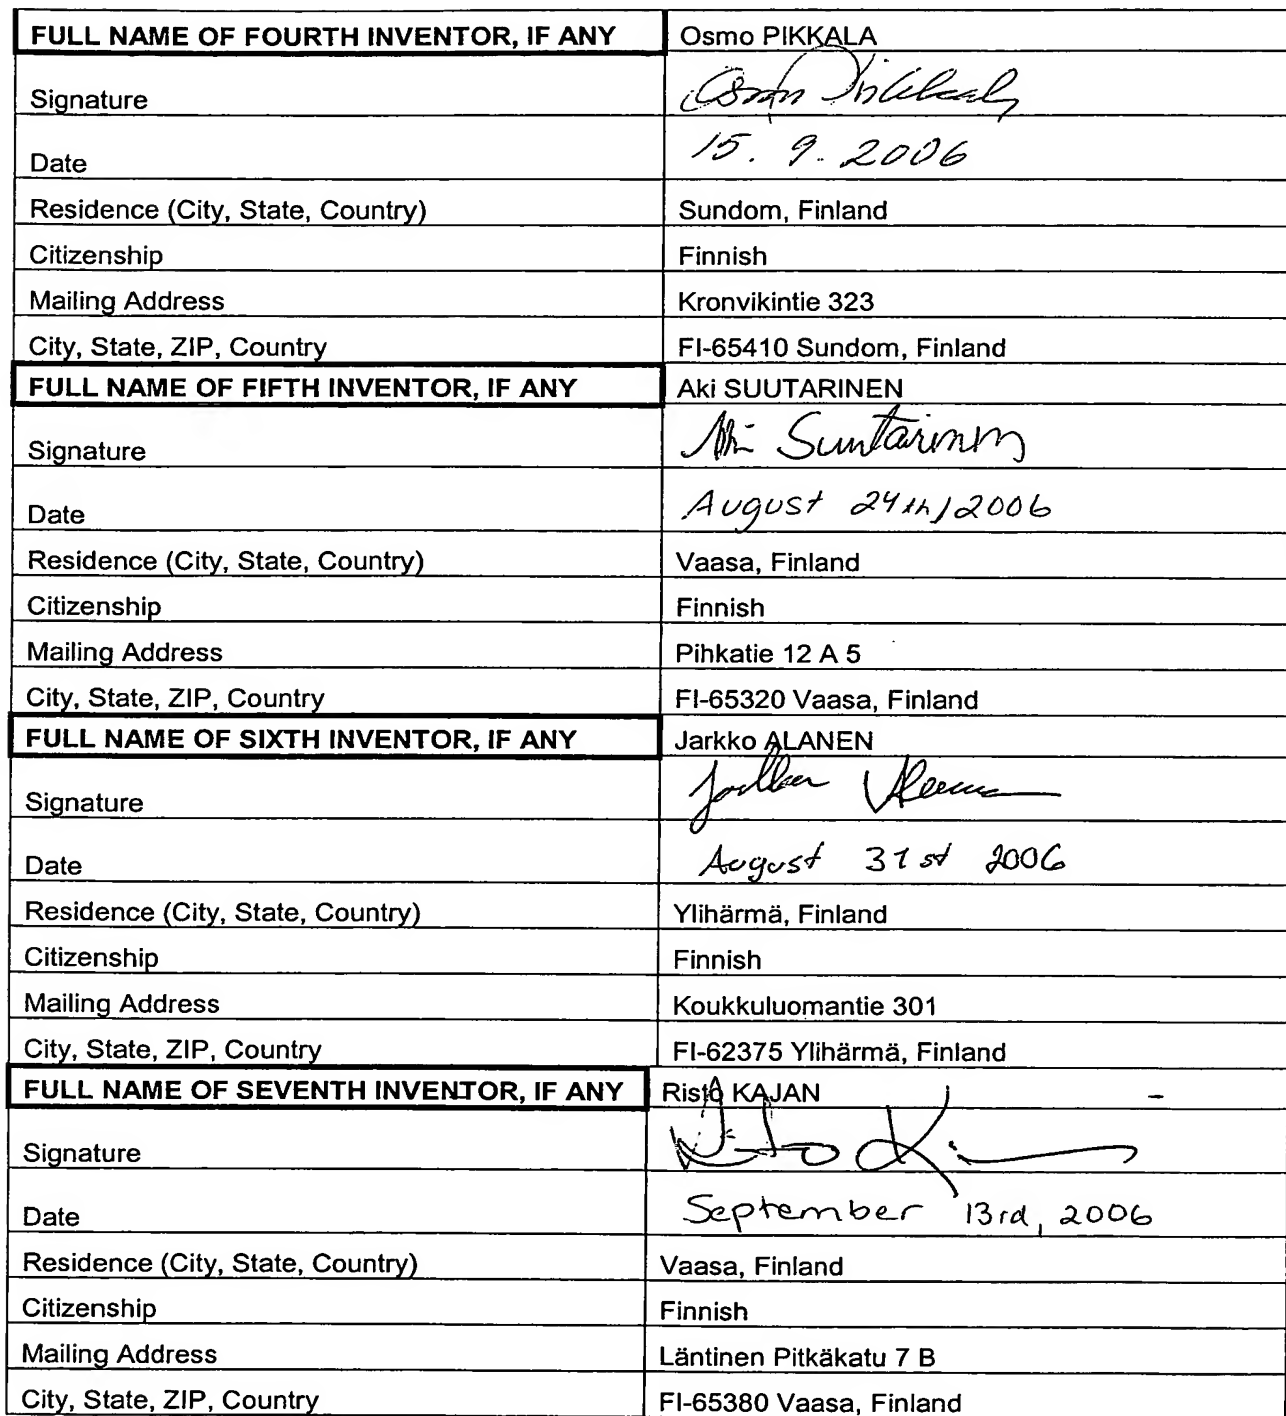 FULL NAME OF FOURTH INVENTOR, IF ANY Osmo PIKKALA
Signature Osmo Pikkala
Date 15. 9. 2006
Residence (City, State, Country) Sundom, Finland
Citizenship Finnish
Mailing Address Kronvikintie 323
City, State, ZIP, Country FI-65410 Sundom, Finland
FULL NAME OF FIFTH INVENTOR, IF ANY Aki SUUTARINEN
Signature Aki Suutarinen
Date August 24th/2006
Residence (City, State, Country) Vaasa, Finland
Citizenship Finnish
Mailing Address Pihkatie 12 A 5
City, State, ZIP, Country FI-65320 Vaasa, Finland
FULL NAME OF SIXTH INVENTOR, IF ANY Jarkko ALANEN
Signature Jarkko Alanen
Date August 31st 2006
Residence (City, State, Country) Ylihärmä, Finland
Citizenship Finnish
Mailing Address Koukkuluomantie 301
City, State, ZIP, Country FI-62375 Ylihärmä, Finland
FULL NAME OF SEVENTH INVENTOR, IF ANY Risto KAJAN
Signature
Date September 13rd, 2006
Residence (City, State, Country) Vaasa, Finland
Citizenship Finnish
Mailing Address Läntinen Pitkäkatu 7 B
City, State, ZIP, Country FI-65380 Vaasa, Finland